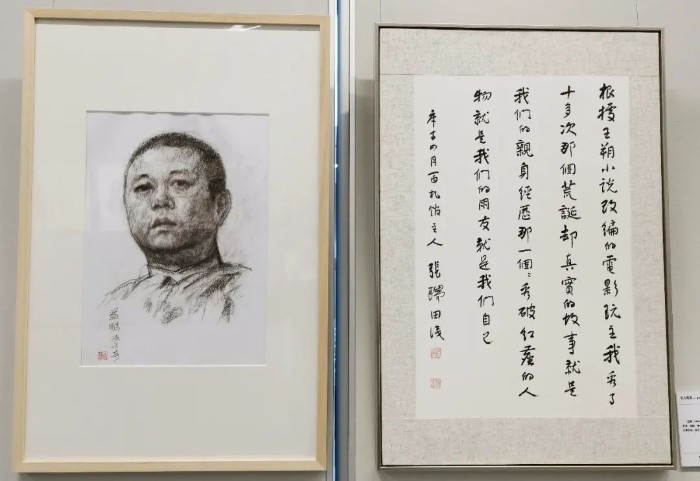 根據王朔小說改編的電影玩主我看了
十多次那個荒誕卻真實的故事就是
我們的親身經歷那一個〻看破紅塵的人
物就是我們的朋友就是我們自己
庚子四月百札館主人 張瑞田